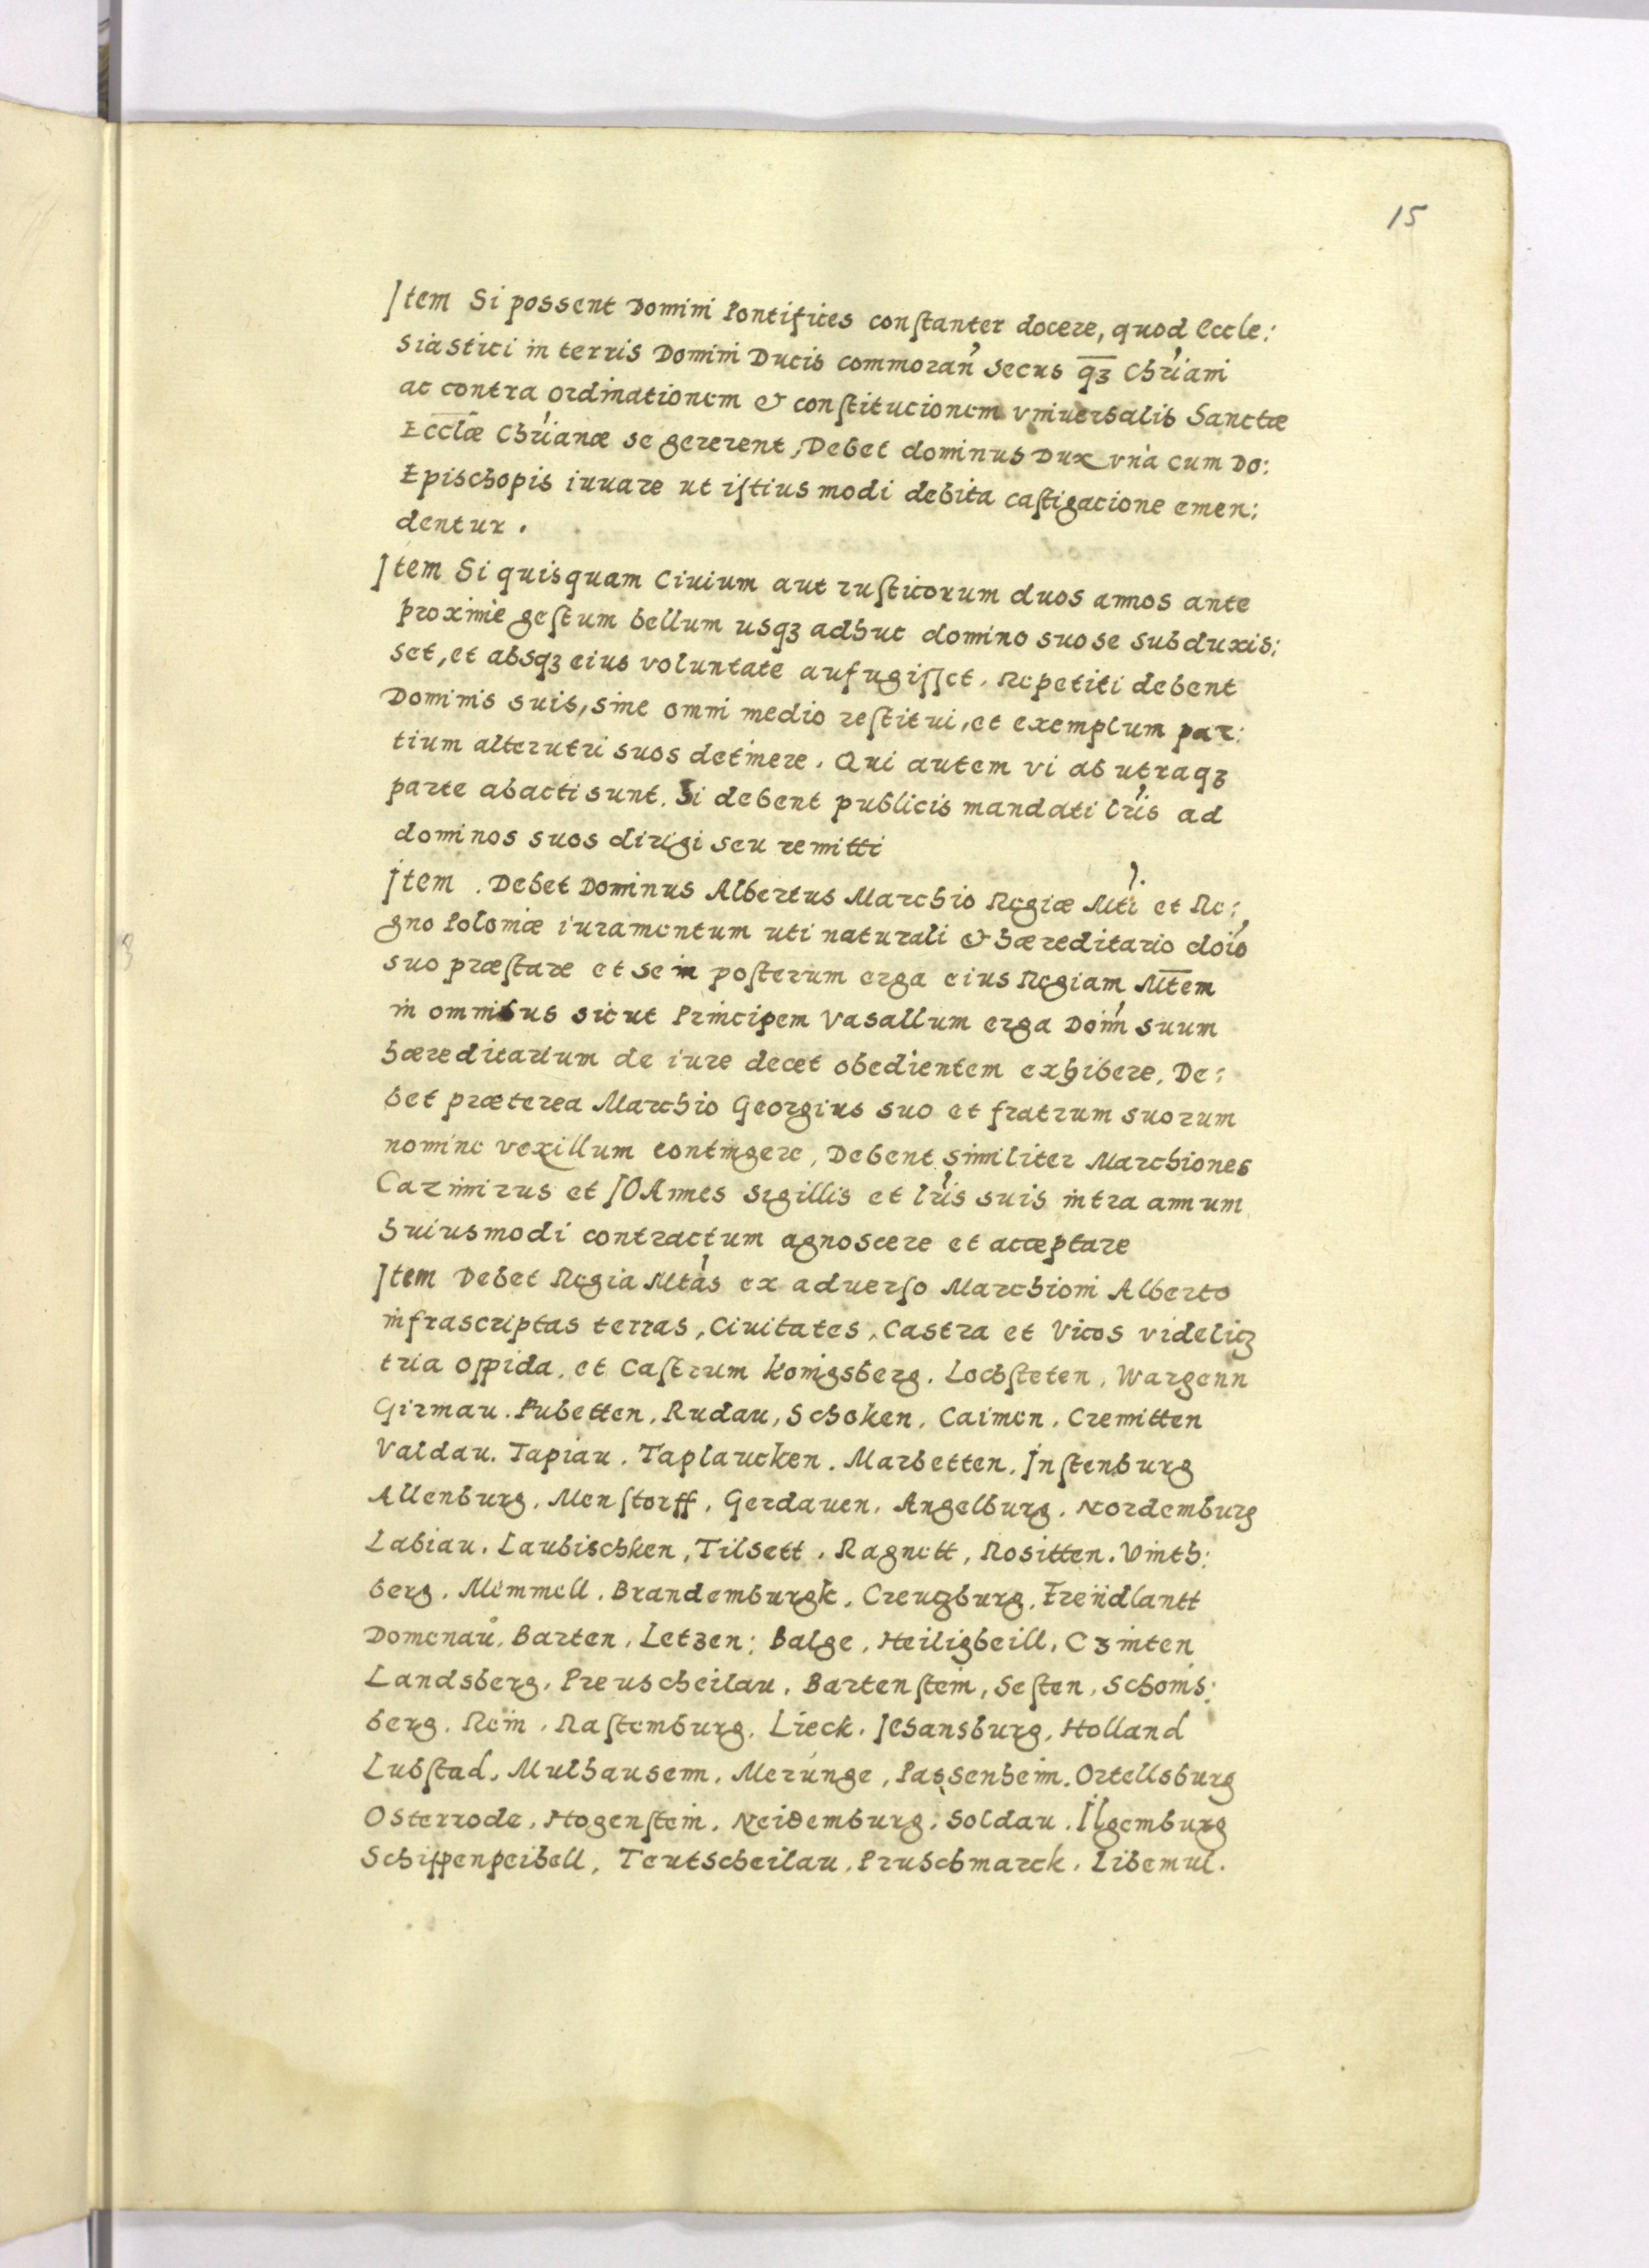 15
Item Si possent Domini Pontifices constanter docere, quod Eccle:
siastici in terris Domini Ducis commoran̄ secus q̄ꝫ Chr̄iani
ac contra ordinationem & constitucionem vniuersalis Sanctæ
Eccl̄æ Chr̄ianæ se gererent, Debet dominus Dux vnà cum Do:
Epischopis iuuare ut istiusmodi debita castigacione emen:
dentur.
Item Si quisquam Ciuium aut rusticorum duos annos ante
proxime gestum bellum usqꝫ adhuc domino suo se subduxis:
set, et absqꝫ eius voluntate aufugisset. Repetiti debent
Dominis suis, sine omni medio restitui, et exemplum par:
tium alterutri suos detinere. Qui autem vi ab utraqꝫ
parte abacti sunt. Si debent publicis mandati lr̄is ad
dominos suos dirigi seu remitti
Item. Debet Dominus Albertus Marchio Regiæ Mti et Re:
gno Poloniæ iuramentum uti naturali & hæreditario doīo
suo præstare et se in posterum erga eius Regiam Mt̄em
in omnibus sicut Principem Vasallum erga Doīm suum
hæreditarium de iure decet obedientem exhibere, De:
bet præterea Marchio Georgius suo et fratrum suorum
nomine vexillum contingere, Debent similiter Marchiones
Cazimirus et JOAnnes sigillis et lr̄is suis intra annum
huiusmodi contractum agnoscere et acceptare
Item Debet Regia Mtas ex aduerso Marchioni Alberto
infrascriptas terras, Ciuitates, Castra et Vicos videlicꝫ
tria oppida, et Castrum Konigsberg. Lochsteten, Wargenn
Girmau. Pubetten, Rudau, Schoken, Caimen, Cremitten
Valdau. Tapiau. Taplaucken. Marbetten. Instenburg
Allenburg. Menstorff. Gerdauen. Angelburg. Nordemburg
Labiau. Laubischken, Tilsett. Ragnett, Rositten. Vinth:
berg. Memmell. Brandemburgk. Creuczburg. Frendlantt
Domenaů. Barten. Letzen: Balge, Heiligbeill, Czinten
Landsberg. Preuscheilau. Bartenstein, Sesten, Schonis:
berg. Rein. Rastemburg. Lieck. Jehansburg, Holland
Lubstad. Mulhausenn. Merunge, Passenheim. Ortellsburg
Osterrode. Hogenstein. Neidemburg. Soldau. Ilgemburg
Schippenpeihell, Teutscheilau. Pruschmarck. Libemul.